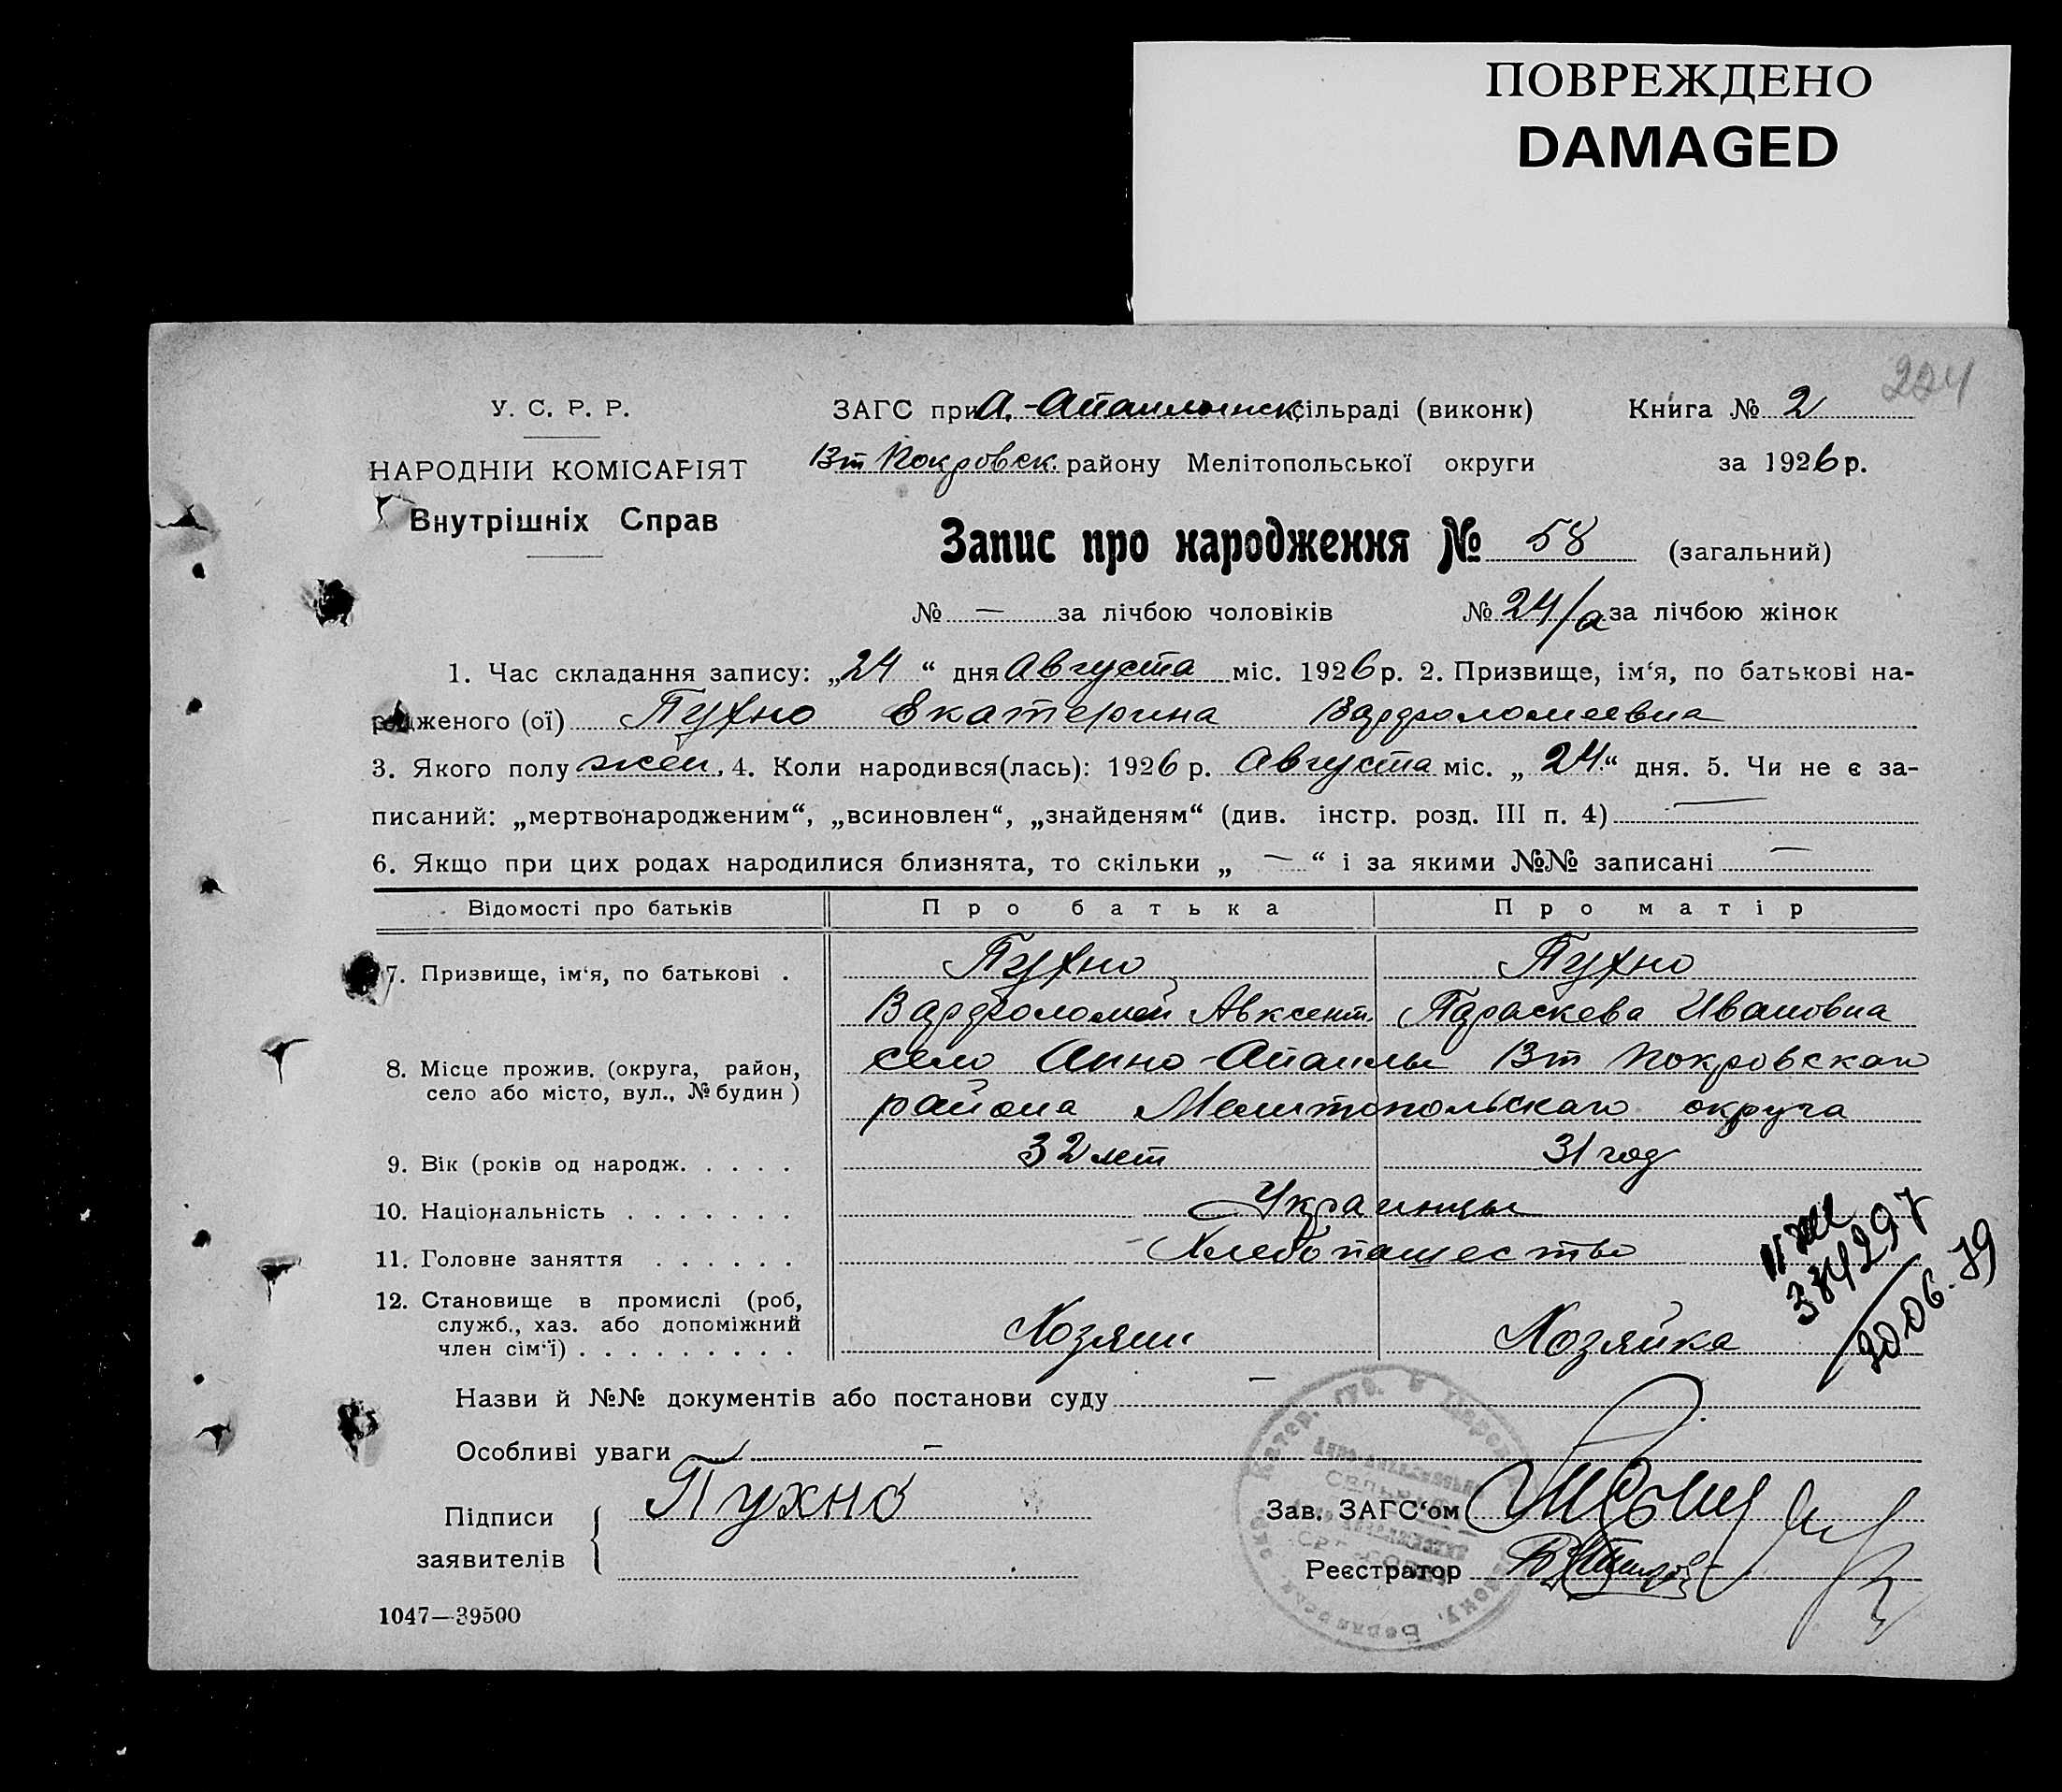 ПОВРЕЖДЕНО
DAMAGED
224
У. С. Р. Р.
НАРОДНІЙ КОМІСАРІЯТ
Внутрішніх Справ
ЗАГС при А.-Апанлынск. сільраді (виконк)
Книга № 2
Вт Покровск. району Мелітопольської округи
за 1926 р.
Запис про народження № 58 (загальний)
№ — за лічбою чоловіків № 24/а за лічбою жінок
1. Час складання запису: „24“ дня Августа міс. 1926 р. 2. Призвище, ім‘я, по батькові на-
родженого (ої) Пухно Екатерина Варфоломеевна
3. Якого полу жен. 4. Коли народився(лась): 1926 р. Августа міс. „24.“ дня. 5. Чи не є за-
писаний: „мертвонародженим“, „всиновлен“, „знайденям“ (див. інстр. розд. III п. 4) —
6. Якщо при цих родах народилися близнята, то скільки „ — “ і за якими №№ записані —
Відомості про батьків Про батька Про матір
7. Призвище, ім‘я, по батькові . Пухно Пухно
Варфоломей Авксент. Параскева Ивановна
8. Місце прожив. (округа, район, село Анно-Апанлы Вт Покровскаго
село або місто, вул., № будин ) района Мелитопольскаго округа
9. Вік (років од народж. . . . . 32 лет 31 год
10. Національність . . . . . . . Украинцы
11. Головне заняття . . . . . . Хлебопашество
12. Становище в промислі (роб,
служб., хаз. або допоміжний Хозяин Хозяйка
член сім‘ї) . . . . . . . . .
384297
20.06.79
Назви й №№ документів або постанови суду —
Особливі уваги —
Підписи
заявителів
Пухно
Зав. ЗАГС‘ом
Реєстратор
1047—39500